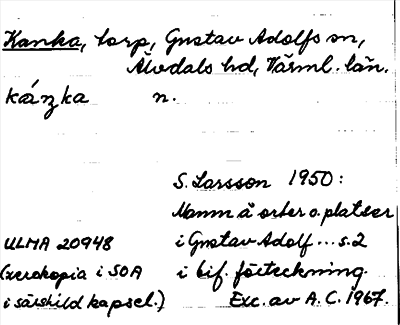 Kanka, torp, Gustav Adolfs sn,
Älvdals hd, Värml. län.
kánka n.
S. Larsson 1950:
Namn å orter o. platser
ULMA 20948 i Gustav Adolf ... s. 2
(xerokopia i SOA i bif. förteckning.
i särskild kapsel.) Exc. av A. C. 1967.